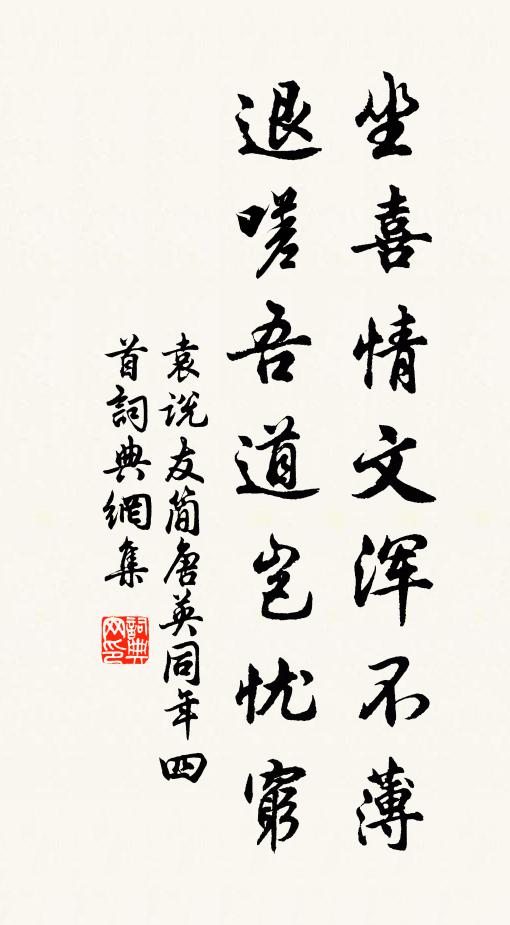 坐喜情文浑不薄
退嗟吾道岂忧窮
袁说友简唐英同年四
首詞典網集
詞典
网印